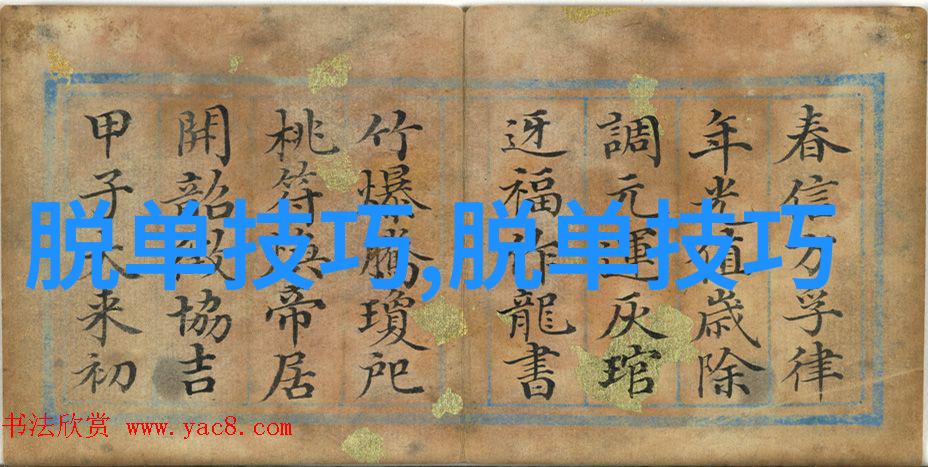 春信方孚律
年光值歲除
調元運灰琯
迓福作龍書
竹爆騰瓊戺
桃符煥帝居
開韶協吉
甲子来初
脱单技巧,脱单技巧
书法欣赏 www.yac8.com